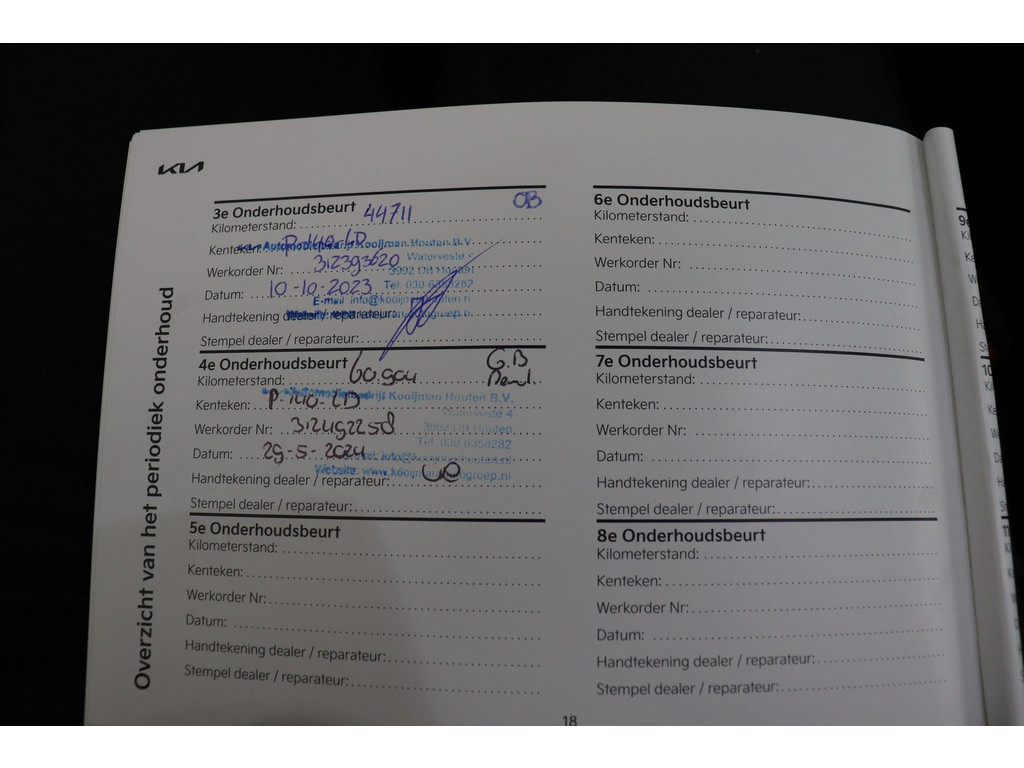 KIA
Overzicht van het periodiek onderhoud
3e Onderhoudsbeurt OB
Kilometerstand: 44711
Kenteken: P-140-LD
Automobielbedrijf Kooijman Houten B.V.
Werkorder Nr: 312393620
Waterveste 4
3992 DB Houten
Datum: 10-10-2023
Tel. 030-6358282
E-mail: info@kooijmanhouten.nl
Handtekening dealer / reparateur:
Stempel dealer / reparateur:
4e Onderhoudsbeurt G.B
Kilometerstand: 60.904
Automobielbedrijf Kooijman Houten B.V.
Kenteken: P-140-LD
Waterveste 4
3992 DB Houten
Werkorder Nr: 312492258
Tel. 030 6358282
Datum: 29-5-2024
Website: www.kooijmanautogroep.nl
Handtekening dealer / reparateur:
Stempel dealer / reparateur:
5e Onderhoudsbeurt
Kilometerstand:
Kenteken:
Werkorder Nr:
Datum:
Handtekening dealer / reparateur:
Stempel dealer / reparateur:
6e Onderhoudsbeurt
Kilometerstand:
Kenteken:
Werkorder Nr:
Datum:
Handtekening dealer / reparateur:
Stempel dealer / reparateur:
7e Onderhoudsbeurt
Kilometerstand:
Kenteken:
Werkorder Nr:
Datum:
Handtekening dealer / reparateur:
Stempel dealer / reparateur:
8e Onderhoudsbeurt
Kilometerstand:
Kenteken:
Werkorder Nr:
Datum:
Handtekening dealer / reparateur:
Stempel dealer / reparateur:
18